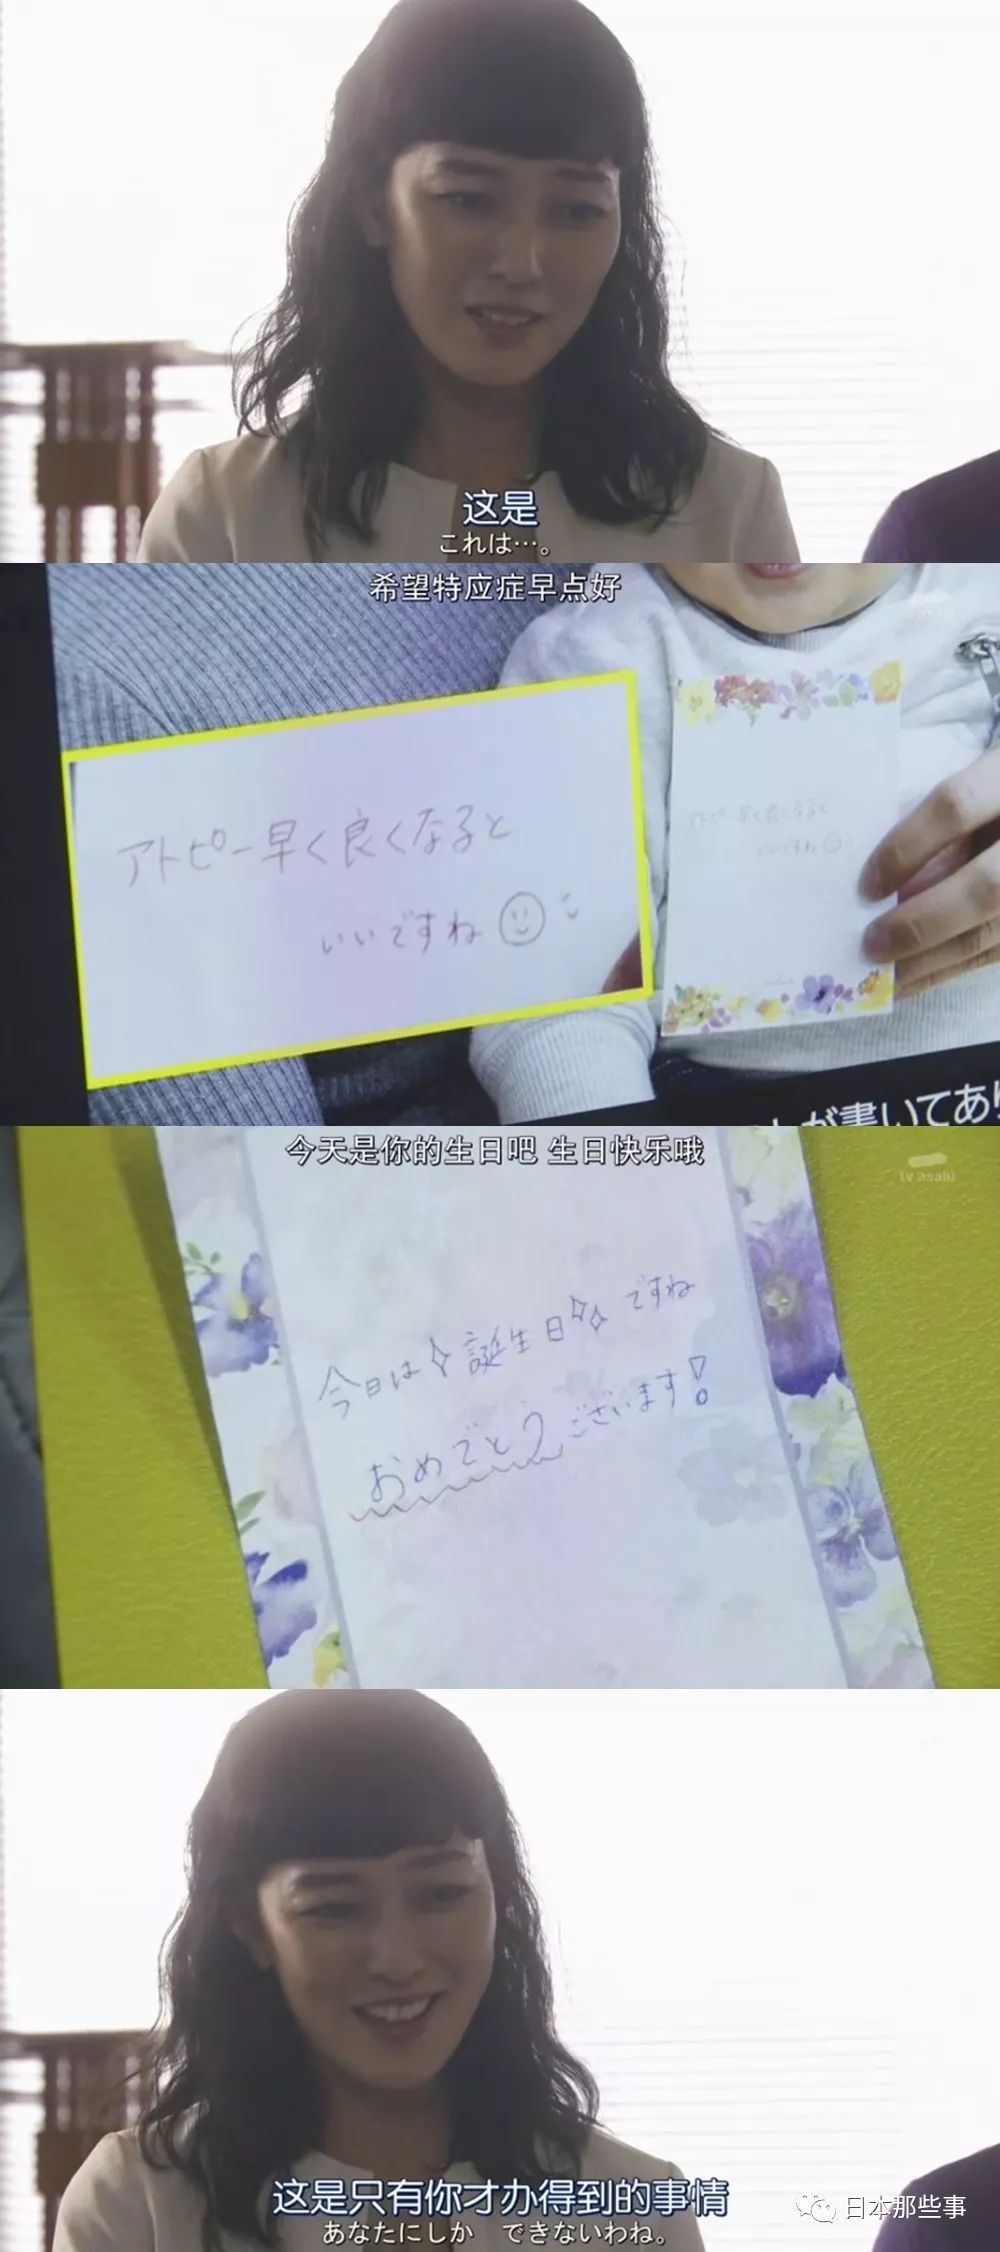 这是
これは…。
希望特应症早点好
アトピー早く良くなると
いいですね
アトピー早く良くなると
いいですね
が書いてあり
今天是你的生日吧 生日快乐哦
tv asahi
今日は誕生日ですね
おめでとうございます!
这是只有你才办得到的事情
あなたにしか できないわね。
日本那些事